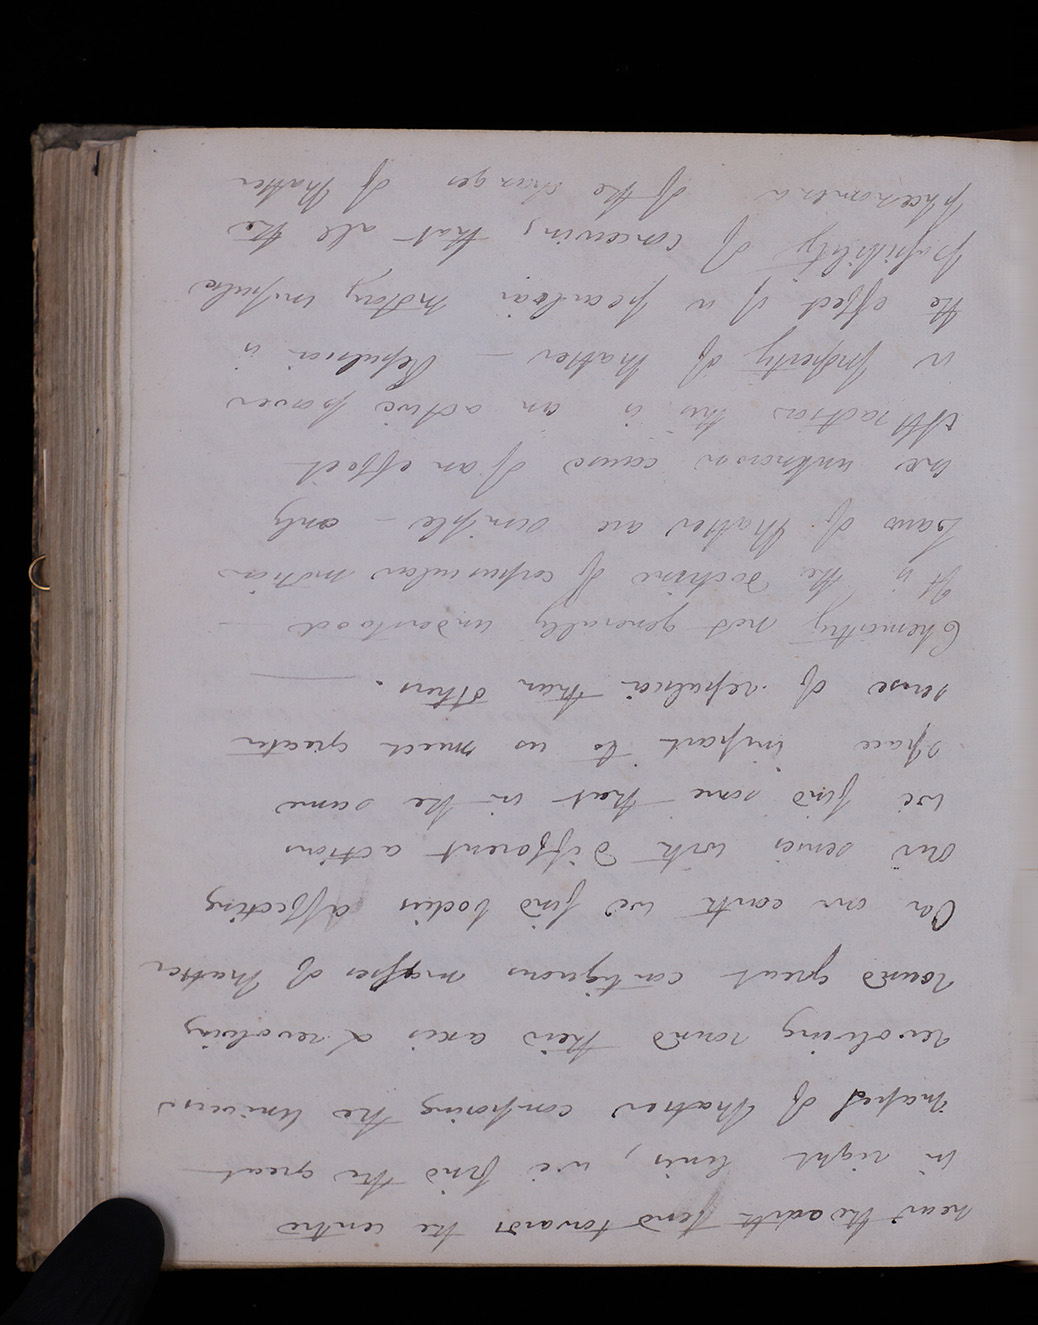 near the earth tend towards the centre
in right lines, we find the great
masses of Matter composing the Univers
revolving round their axis & revolving
round great contiguous masses of Matter
On our earth we find bodies affecting
our senses with different actions
we find some that in the same
space impart to us much greater
sense of repulsion than others.
Chemistry not generally understood —
It is the Doctrine of corpuscular motion
Laws of Matter are simple — only
one unknown cause of an effect
Attraction this is an active power
a Property of Matter — Repulsion is
the effect of a peculiar Motion, impulse
possibility of conceiving that all the
phaenomena of the changes of Matter